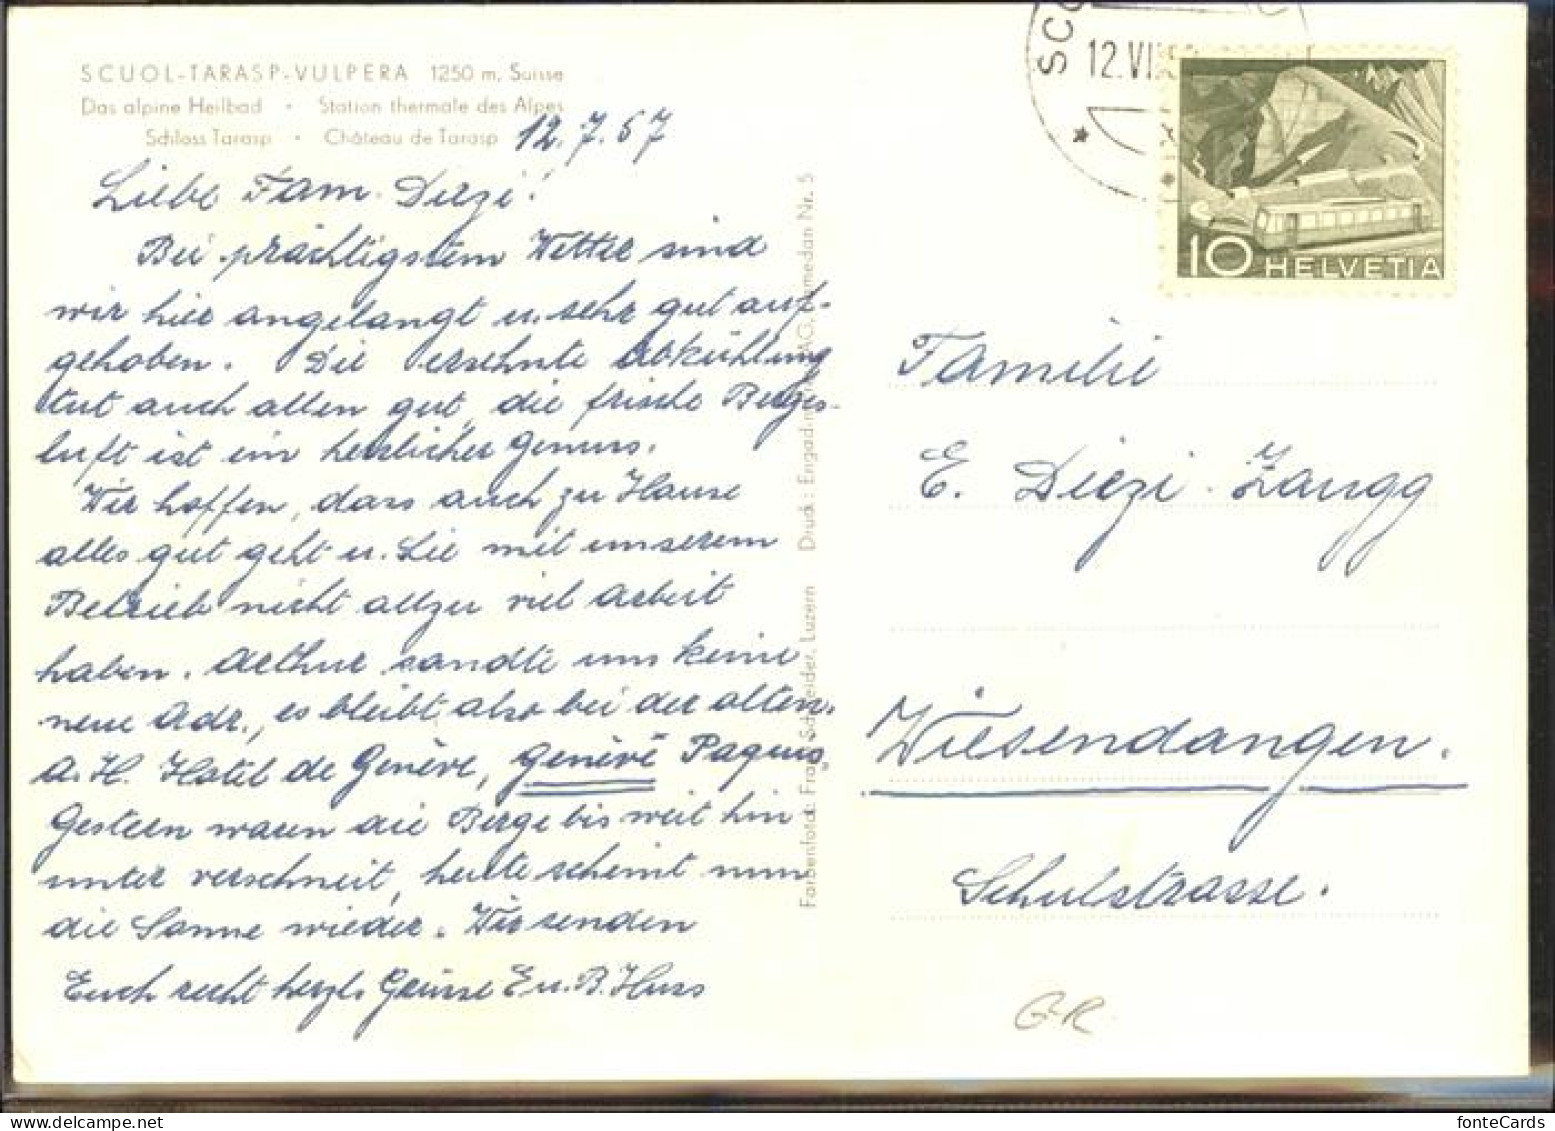 SCUOL-TARASP-VULPERA 1250 m, Suisse
Das alpine Heilbad • Station thermale des Alpes
Schloss Tarasp • Château de Tarasp
12.7.57
Liebe Fam. Diezi!
Bei prächtigstem Wetter sind
wir hier angelangt u. sehr gut auf-
gehoben. Die ersehnte Abkühlung
tut auch allen gut, die frische Berges-
luft ist ein herrlicher Genuss.
Wir hoffen, dass auch zu Hause
alles gut geht u. Sie mit unserem
Betrieb nicht allzu viel Arbeit
haben. Arthur sandte uns keine
neue Adr., es bleibt also bei der alten.
A. H. Hotel de Genève, Genève Paquis
Gestern waren die Berge bis weit hin
unter verschneit, heute scheint nun
die Sonne wieder. Wir senden
Euch recht herzl. Grüsse E. u. B. Huss
Farbenfoto: Schneider, Luzern Druck: Engadin AG, Samedan Nr. 5
12.VII
10 HELVETIA
Familie
E. Diezi-Zangg
Wiesendangen.
Schulstrasse.
GR
fonteCards